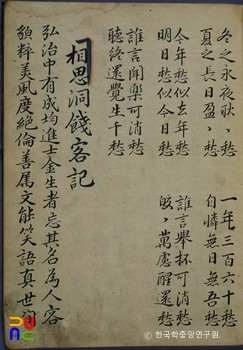 冬之永夜耿﹅愁
夏之長日盈﹅愁
今年愁似去年愁
明日愁似今日愁
誰言聞樂可消愁
聽終還覺生千愁
一年三百六十愁
自憐無日無吾愁
誰言舉杯可消愁
﹅萬慮醒還愁
相思洞餞客記
弘治中有成均進士金生者忘其名爲人容
貌粹美風度絶倫善屬文能笑語真世
ⓒ한국학중앙연구원